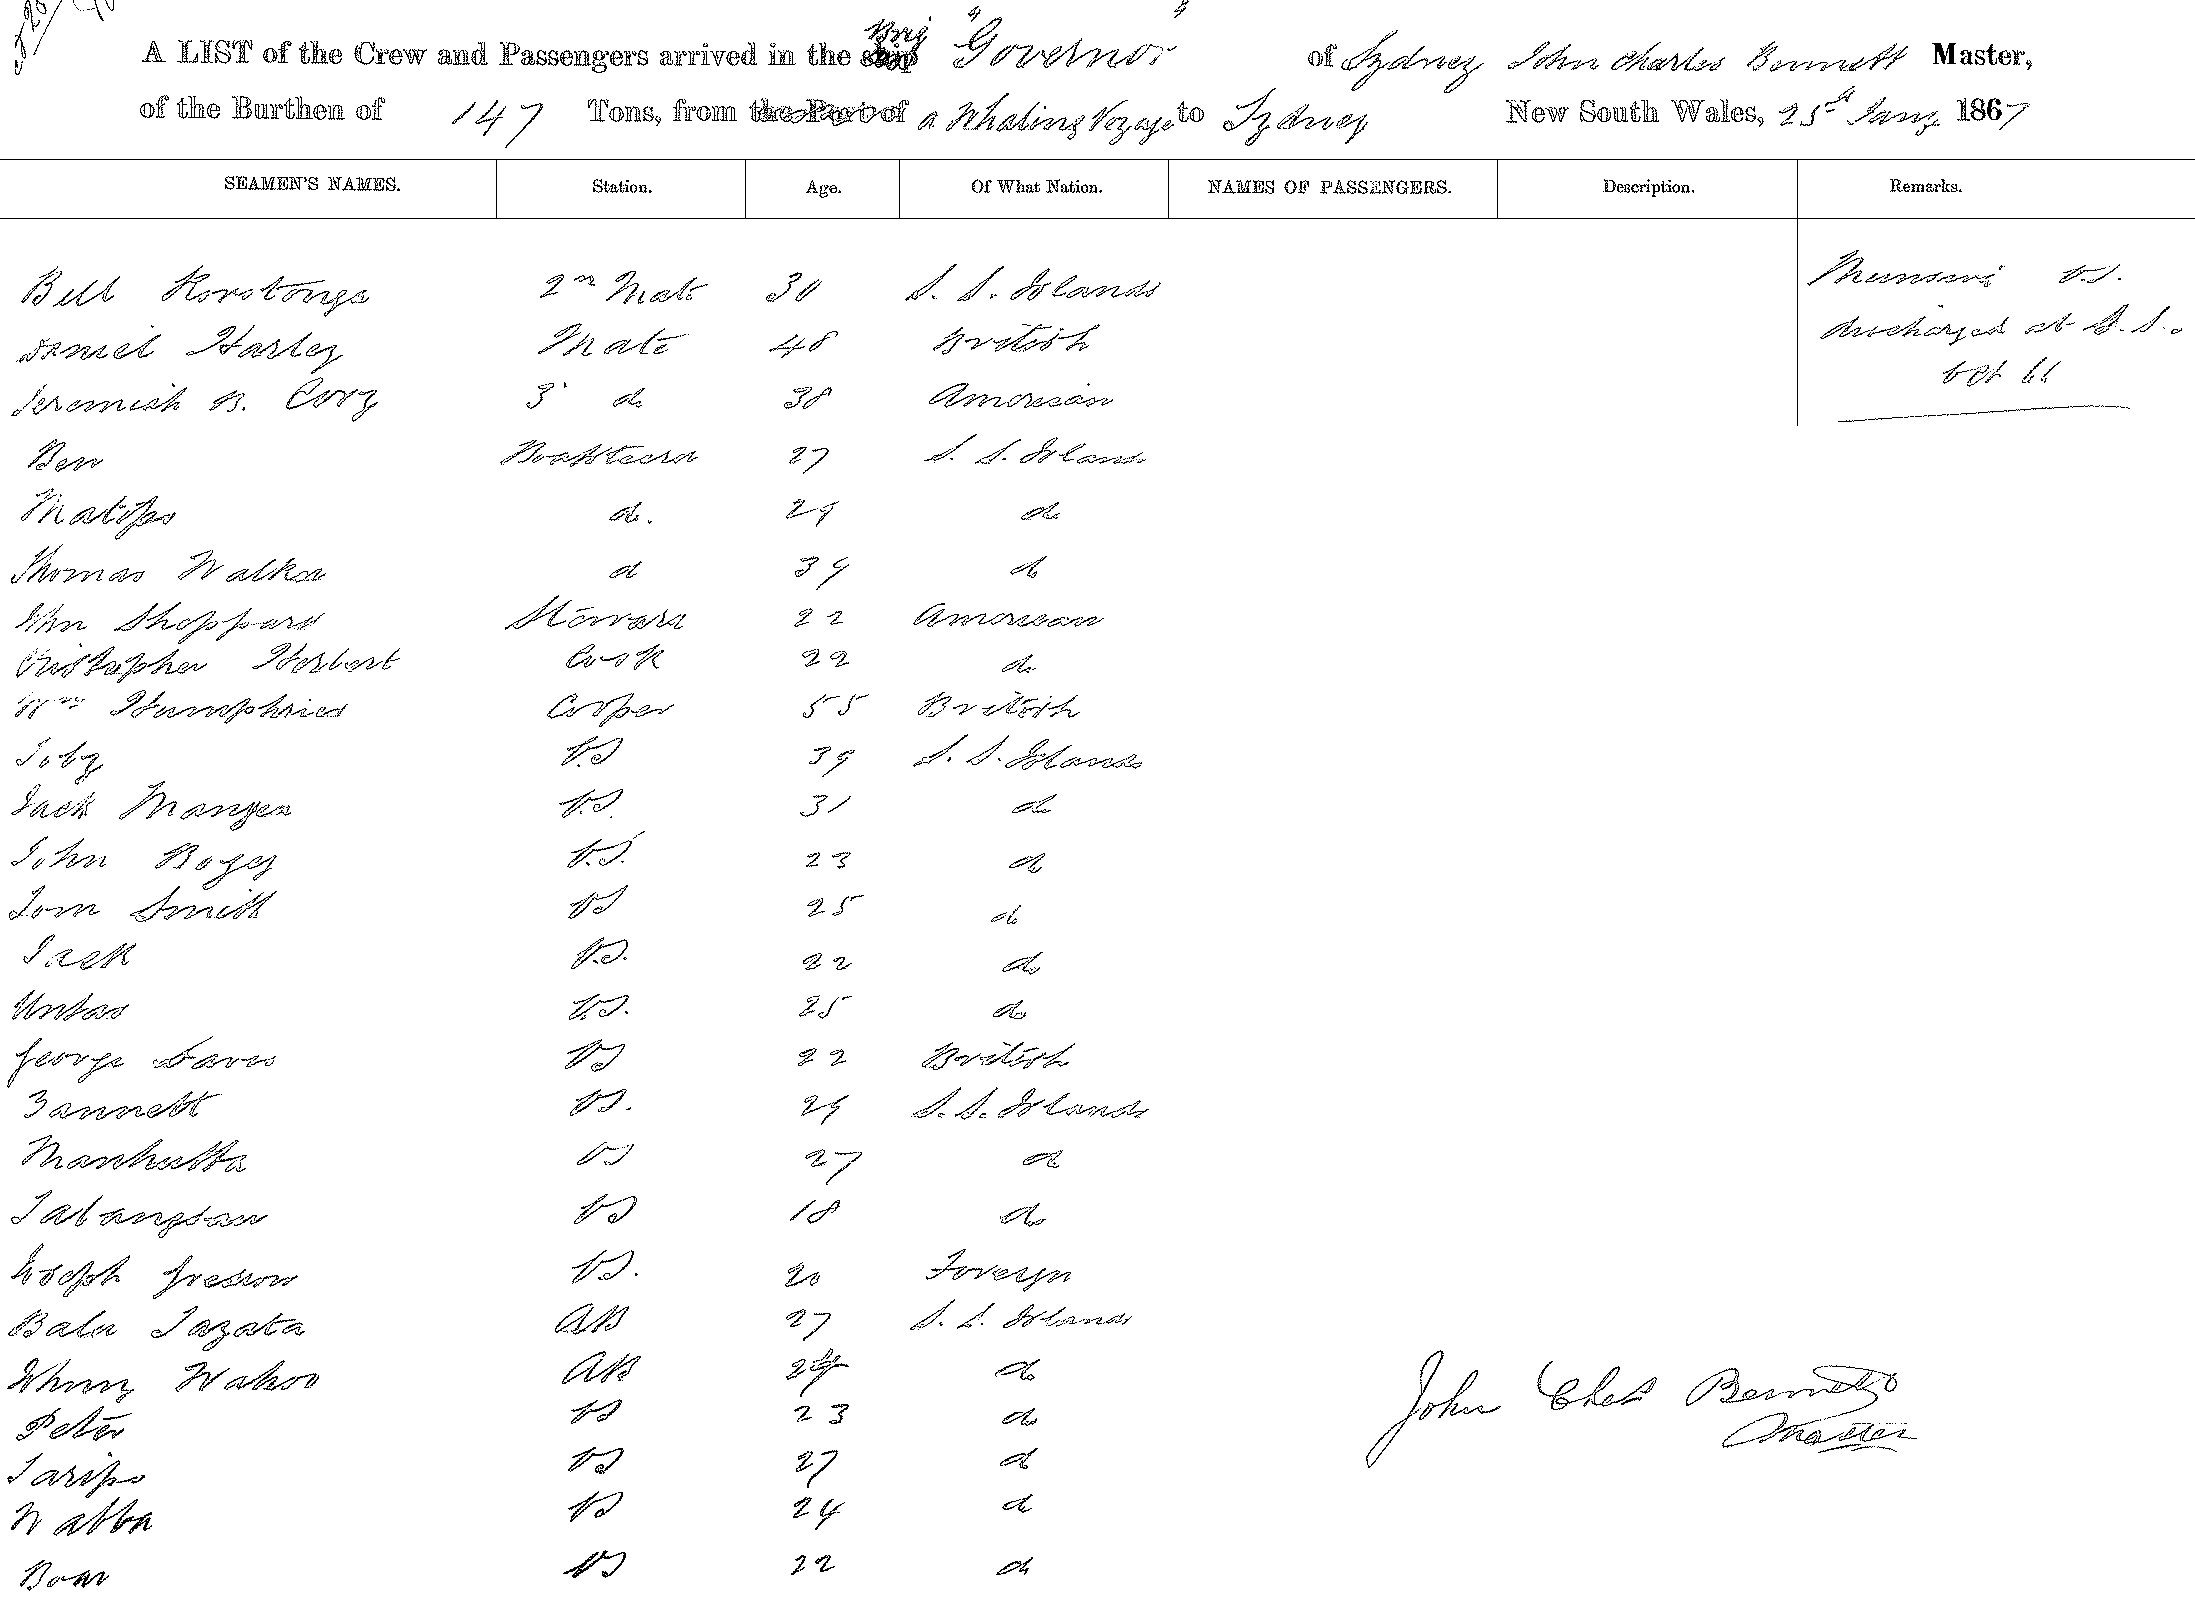 A LIST of the Crew and Passengers arrived in the Brig "Governor" of Sydney John Charles Bennett Master,
of the Burthen of 147 Tons, from the Port of a Whaling Voyage to Sydney New South Wales, 25th Jany 1867
SEAMEN'S NAMES. Station. Age. Of What Nation. NAMES OF PASSENGERS. Description. Remarks.
Bell Rorotonga 2nd Mate 30 S. S. Islands
Daniel Harley Mate 48 British
Jeremiah B. Cory 3 do 38 American
Ben Boatsteerer 27 S. S. Island
Matipo do. 29 do
Thomas Walker do 39 do
John Sheppard Steward 22 American
Christopher Herbert Cook 22 do
Wm Humphries Cooper 55 British
Toby O.S 39 S. S. Islands
Jack Mangea O.S. 31 do
John Bogey O.S. 23 do
Tom Smith OS 25 do
Jack O.S. 22 do
Untas O.S. 25 do
George Daves OS 22 British
Bannett OS. 29 S.S. Islands
Manhutta OS 27 do
OS 18 do
Joseph OS. 20 Foreign
AB 27 S. S. Islands
Johnny Wahoo AB do
Peter OS 23 do
Taripo OS 27 do
Wabba OS 24 do
Boar OS 22 do
O.S.
discharged at S.S.
Oct 66
John Chas Bennett
Master